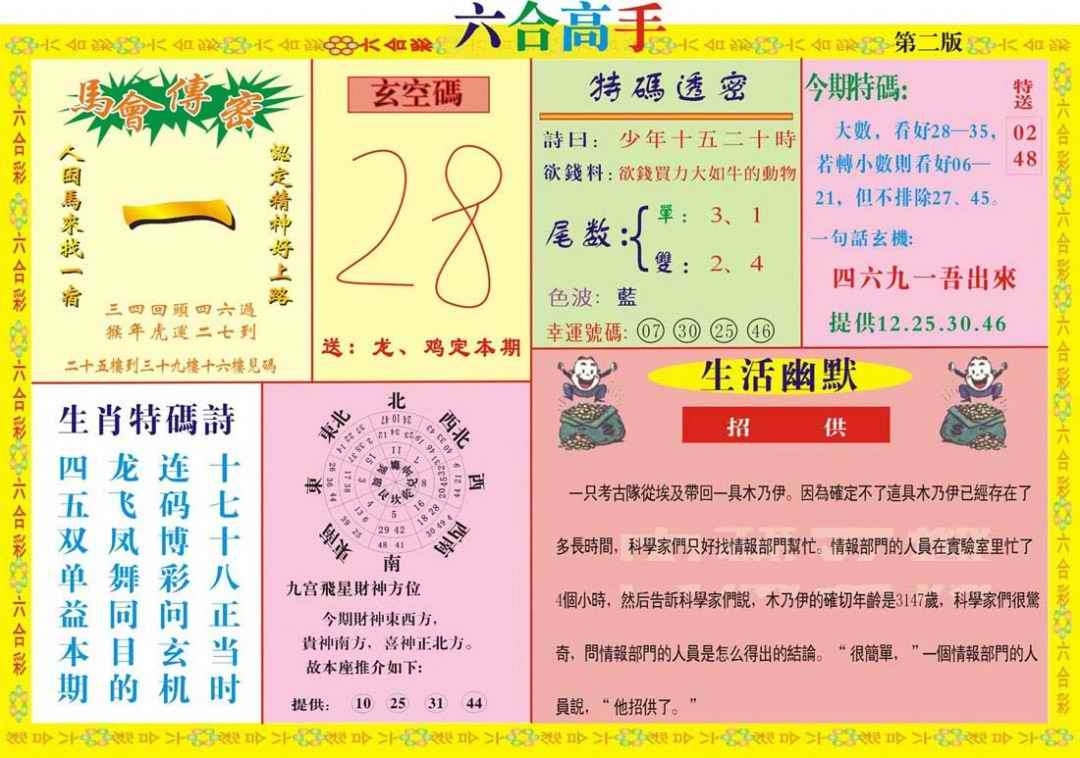 六合高手
第二版
馬會傳密
人因馬來找一宿
一
認定精神好上路
三四回頭四六過
猴年虎運二七到
二十五樓到三十九樓十六樓見碼
玄空碼
28
送：龙、鸡定本期
特碼透密
詩曰：少年十五二十時
欲錢料：欲錢買力大如牛的動物
尾数：
單：3、1
雙：2、4
色波：藍
幸運號碼：07 30 25 46
今期特碼：
特送
02
48
大數，看好28—35，
若轉小數則看好06—
21，但不排除27、45。
一句話玄機：
四六九一吾出來
提供12.25.30.46
生肖特碼詩
十七十八正当时
连码博彩问玄机
龙飞凤舞同目的
四五双单益本期
北
東北
西北
東
西
東南
西南
南
九宫飛星財神方位
今期財神東西方，
貴神南方，喜神正北方。
故本座推介如下：
提供：10 25 31 44
生活幽默
招供
一只考古隊從埃及帶回一具木乃伊。因為確定不了這具木乃伊已經存在了
多長時間，科學家們只好找情報部門幫忙。情報部門的人員在實驗室里忙了
4個小時，然后告訴科學家們說，木乃伊的確切年齡是3147歲，科學家們很驚
奇，問情報部門的人員是怎么得出的結論。“很簡單，”一個情報部門的人
員說，“他招供了。”